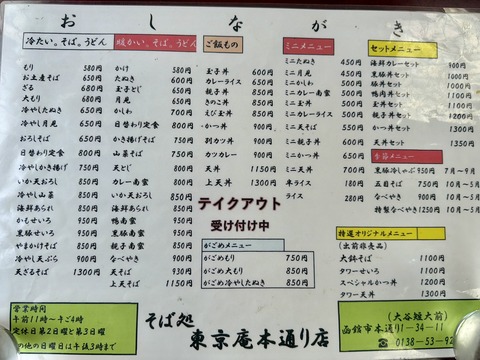 おしながき
冷たい。そば。うどん
もり 580円
お土産そば 650円
ざる 680円
大もり 680円
冷やしたぬき 650円
冷やし月見 650円
おろしそば 650円
日替わり定食 800円
冷やしかき揚げ 750円
いか天おろし 850円
冷やし山菜 850円
海鮮あられ 850円
かもせいろ 950円
黒豚せいろ 950円
やまかけそば 850円
冷やし天ぷら 900円
天ざるそば 1300円
暖かい。そば。うどん
かけ 580円
たぬき 600円
玉子とじ 650円
月見 650円
かしわ 700円
日替わり定食 800円
かき揚げそば 750円
山菜そば 750円
天とじ 800円
カレー南蛮 850円
いか天おろし 850円
海鮮あられ 850円
鴨南蛮 950円
黒豚南蛮 950円
親子南蛮 850円
なべやき 900円
天そば 930円
上天そば 1150円
ご飯もの
玉子丼 600円
カレー丼 650円
親子丼
きのこ丼
えび玉丼
かつ丼 900円
列カツ 900円
カツカレー 900円
天丼 1150円
上天丼 1300円
ミニメニュー
ミニたぬき 450円
ミニ月見 450円
ミニカレー南蛮 500円
ミニかしわ 500円
ミニカレー丼
ミニ天そば 550円
ミニ親子丼
ミニかつ丼
ミニ天丼 750円
半ライス 180円
ライス 280円
セットメニュー
海鮮カレーセット 900円
黒豚丼セット 1000円
豚丼セット 1000円
鴨肉丼セット 1100円
玉丼セット 1100円
かつ丼セット 1300円
天丼セット 1350円
季節メニュー
黒豚冷しゃぶ 950円 7月～9月
五目そば 750円 10月～5月
なべやき 900円 10月～5月
特製なべやき 1250円
テイクアウト
受け付け中
がごめメニュー
がごめもり 750円
がごめ大もり 850円
がごめ冷やしたぬき 850円
特選オリジナルメニュー
(出前非売品)
大鉢そば 1100円
タワーせいろ 1100円
スペシャルかつ丼 1200円
タワー天丼 1300円
営業時間
午前11時～午後4時
定休日第2日曜と第3日曜
その他の日曜日は午後3時まで
そば処
東京庵本通り店
(大谷短大前)
函館市本通り1-34-11
☎ 0138-53-92